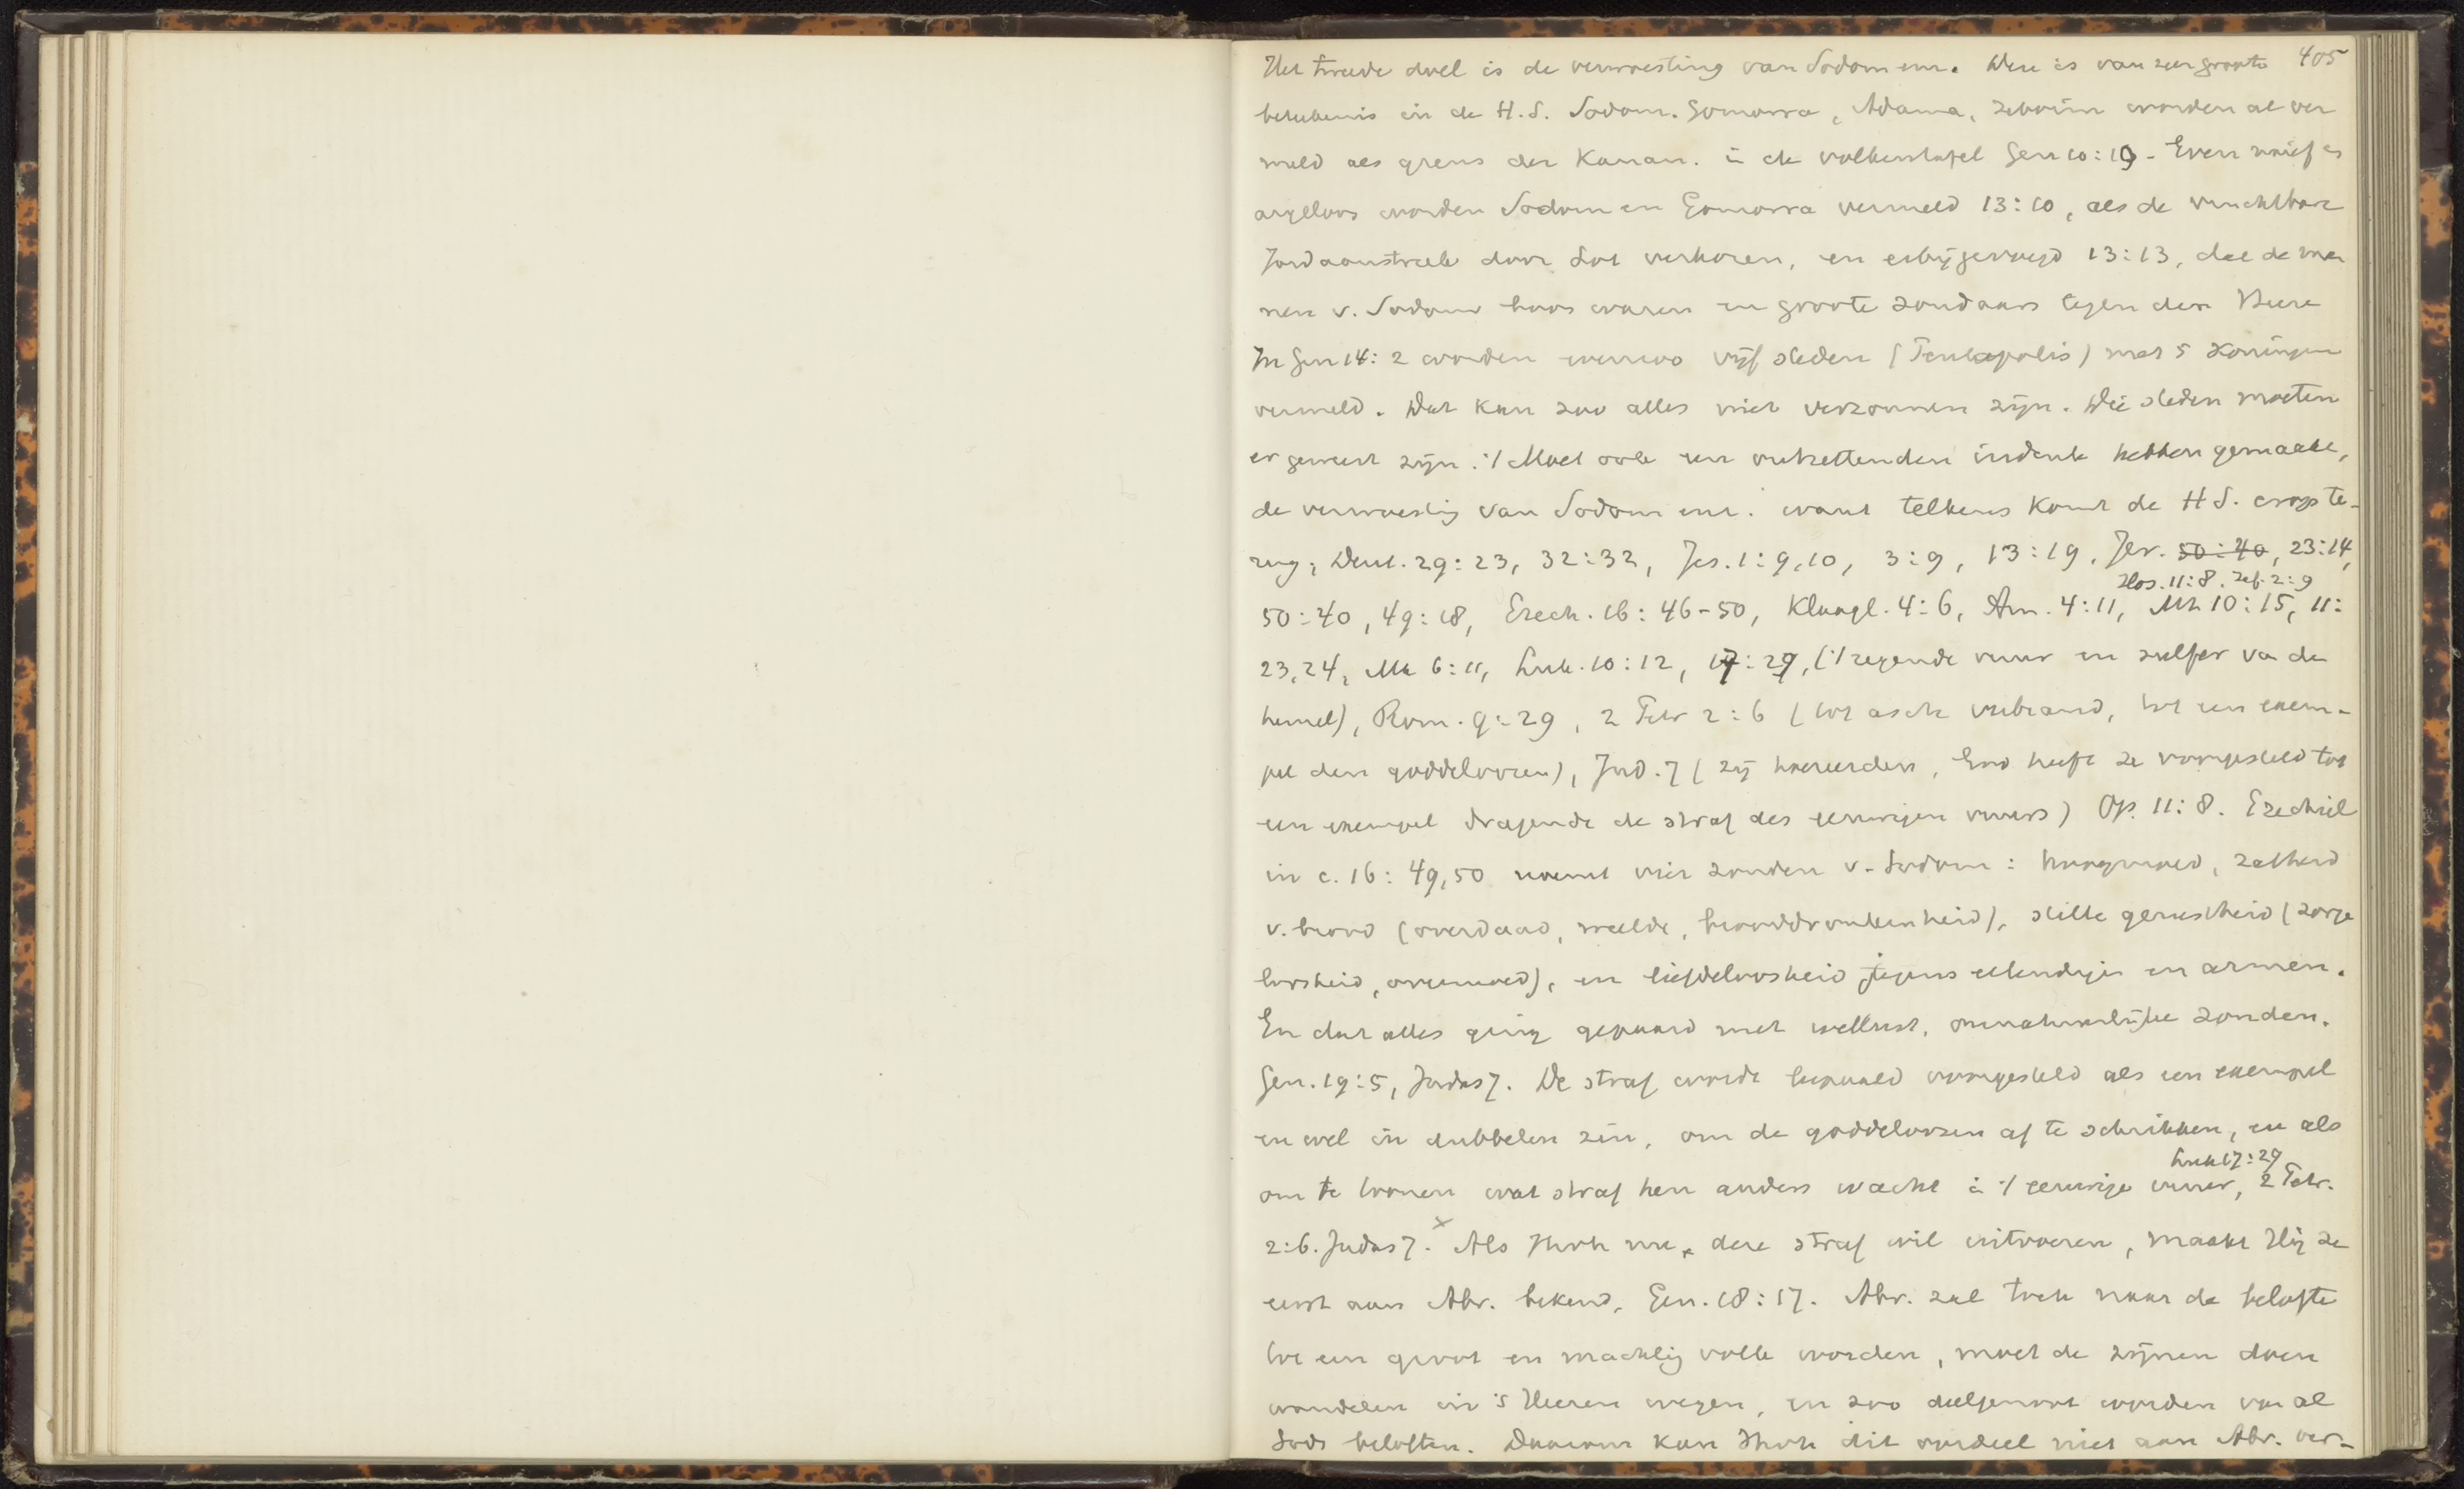 Het tweede doel is de verwoesting van Sodom enz. Deze is van zeer groote 405
beteekenis in de H.S. Sodom. Gomorra, Adama, Zeboim worden al ver
meld als grens der Kanan. in de volkentafel Gen 10:19 - Even naief en
argeloos worden Sodom en Gomorra vermeld 13:10, als de vruchtbare
Jordaanstreek door Lot verkoren, en erbij gevoegd 13:13, dat de man
nen v. Sodom boos waren en groote zondaars tegen den Heere
In Gen 14:2 worden evenzoo vijf steden (Pentapolis) met 5 Koningen
vermeld. Dat kan zoo alles niet verzonnen zijn. Die steden moeten
er geweest zijn. 't Moet ook een ontzettenden indruk hebben gemaakt,
de verwoesting van Sodom enz. want telkens komt de H S. erop te-
rug; Deut. 29:23, 32:32, Jes. 1:9,10, 3:9, 13:19. Jer. 50:40, 23:14,
Hos. 11:8. Zef. 2:9
50:40, 49:18, Ezech. 16:46-50, Klaagl. 4:6, Am. 4:11, Mt 10:15, 11:
23,24, Mk 6:11, Luk. 10:12, 17:29, ('t regende vuur en sulfer va de
hemel), Rom. 9:29, 2 Petr 2:6 (tot asch verbrand, tot een exem-
pel den goddeloozen), Jud. 7 (zij hoereerden, God heeft ze voorgesteld tot
een exempel dragende de straf des eeuwigen vuurs) Op. 11:8. Ezechiel
in c. 16:49,50 noemt vier zonden v. Sodom: hoogmoed, zatheid
v. brood (overdaad, weelde, brooddronkenheid), stille gerustheid (zorge
loosheid, overmoed), en liefdeloosheid jegens ellendigen en armen.
En dat alles ging gepaard met wellust, onnatuurlijke zonden.
Gen. 19:5, Judas 7. De straf wordt bepaald voorgesteld als een exempel
en wel in dubbelen zin, om de goddeloozen af te schrikken, en als
Luk 17:29
om te toonen wat straf hen anders wacht in 't eeuwige vuur, 2 Petr.
2:6. Judas 7. × Als Jhvh nu deze straf wil uitvoeren, maakt Hij ze
eerst aan Abr. bekend, Gen. 18:17. Abr. zal toch naar de belofte
tot een groot en machtig volk worden, moet de zijnen doen
wandelen in 's Heeren wegen, en zoo deelgenoot worden van al
Gods beloften. Daarom kan Jhvh dit oordeel niet aan Abr. ver-